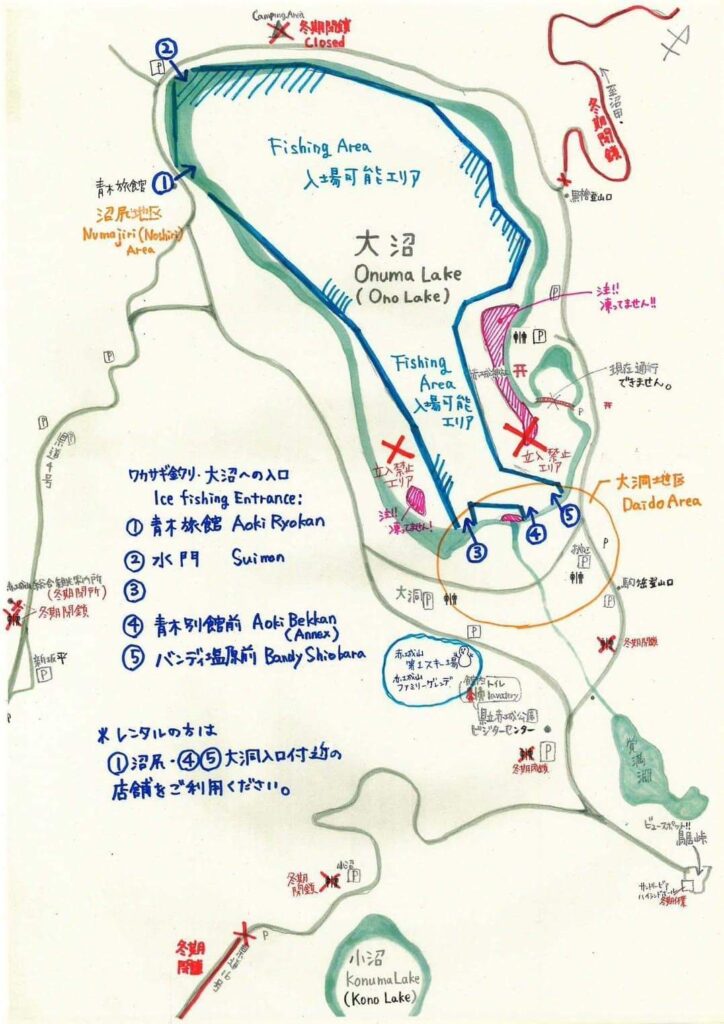 Camping Area
冬期閉鎖
Closed
②
P
至沼田
冬期閉鎖
Fishing Area
入場可能エリア
①
青木旅館
沼尻地区
Numajiri (Noshiri)
Area
黒檜登山口
大沼
Onuma Lake
(Ono Lake)
注!!
凍ってません!!
P
P
P
現在通行
できません。
P
Fishing
Area
入場可能
エリア
立入禁止
エリア
立入禁止
エリア
県道4号
P
注!!
凍ってません!
大洞地区
Daido Area
ワカサギ釣り・大沼への入口
Ice fishing Entrance:
① 青木旅館 Aoki Ryokan
② 水門 Suimon
③
④ 青木別館前 Aoki Bekkan
(Annex)
⑤ バンディ塩原前 Bandy Shiobara
③
④
⑤
P
P
P
駒ヶ岳登山口
大洞
P
P
(冬期閉所)
冬期閉鎖
冬期閉鎖
新坂平
P
赤城山
第1スキー場
赤城山
ファミリーゲレンデ
館内トイレ
lavatory
県立赤城公園
ビジターセンター
P
冬期閉鎖
覚満淵
※レンタルの方は
①沼尻・④⑤大洞入口付近の
店舗をご利用ください。
ビュースポット!!
鳥居峠
冬期休業
小沼
P
冬期
閉鎖
P
冬期
閉鎖
県道16号
小沼
Konuma Lake
(Kono Lake)